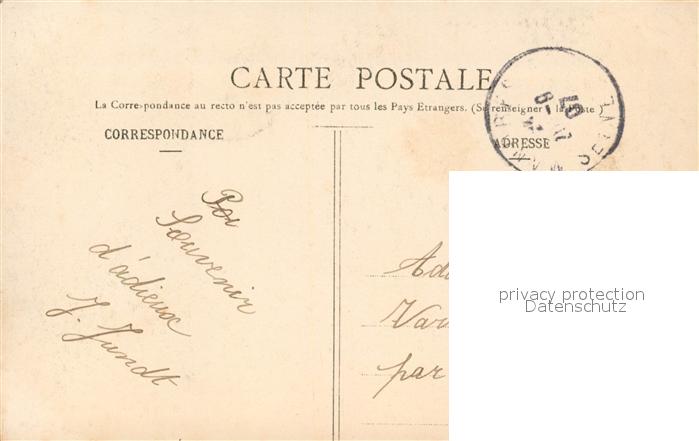 CARTE POSTALE
La Correspondance au recto n'est pas acceptée par tous les Pays Etrangers. (Se renseigner à la Poste
CORRESPONDANCE
ADRESSE
Souvenir
d'adieux
J. Jundt
Var
par
privacy protection
Datenschutz